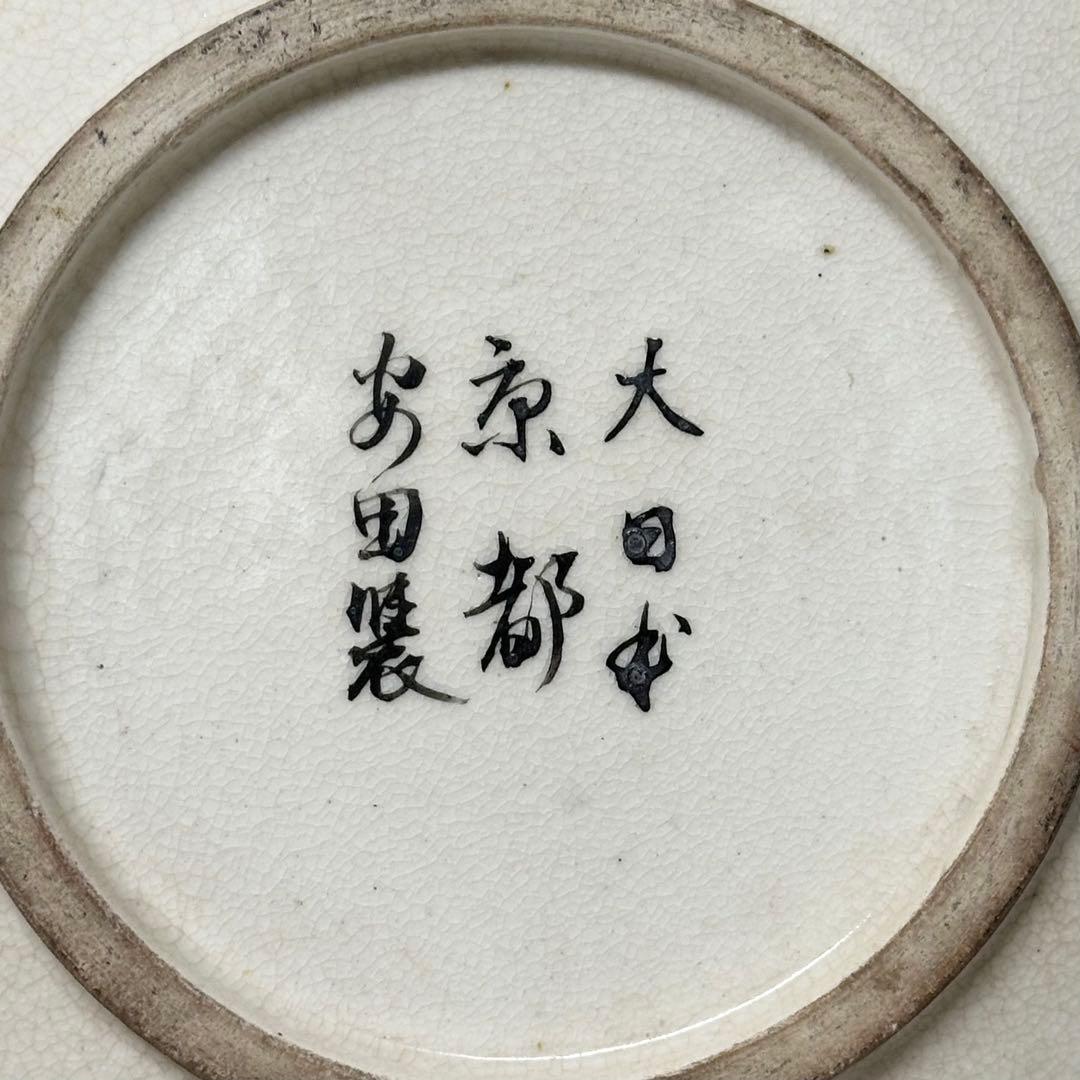 大日本
京都
安田製